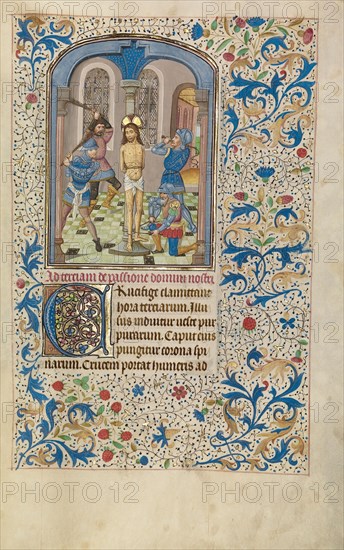 Ad terciam de passione domini nostri
Crucifige clamitant
hora terciarum. Illu
sus induitur ueste pur
purarum. Caput eius
pungitur corona spi
narum. Crucem portat humeris ad
PHOTO 12